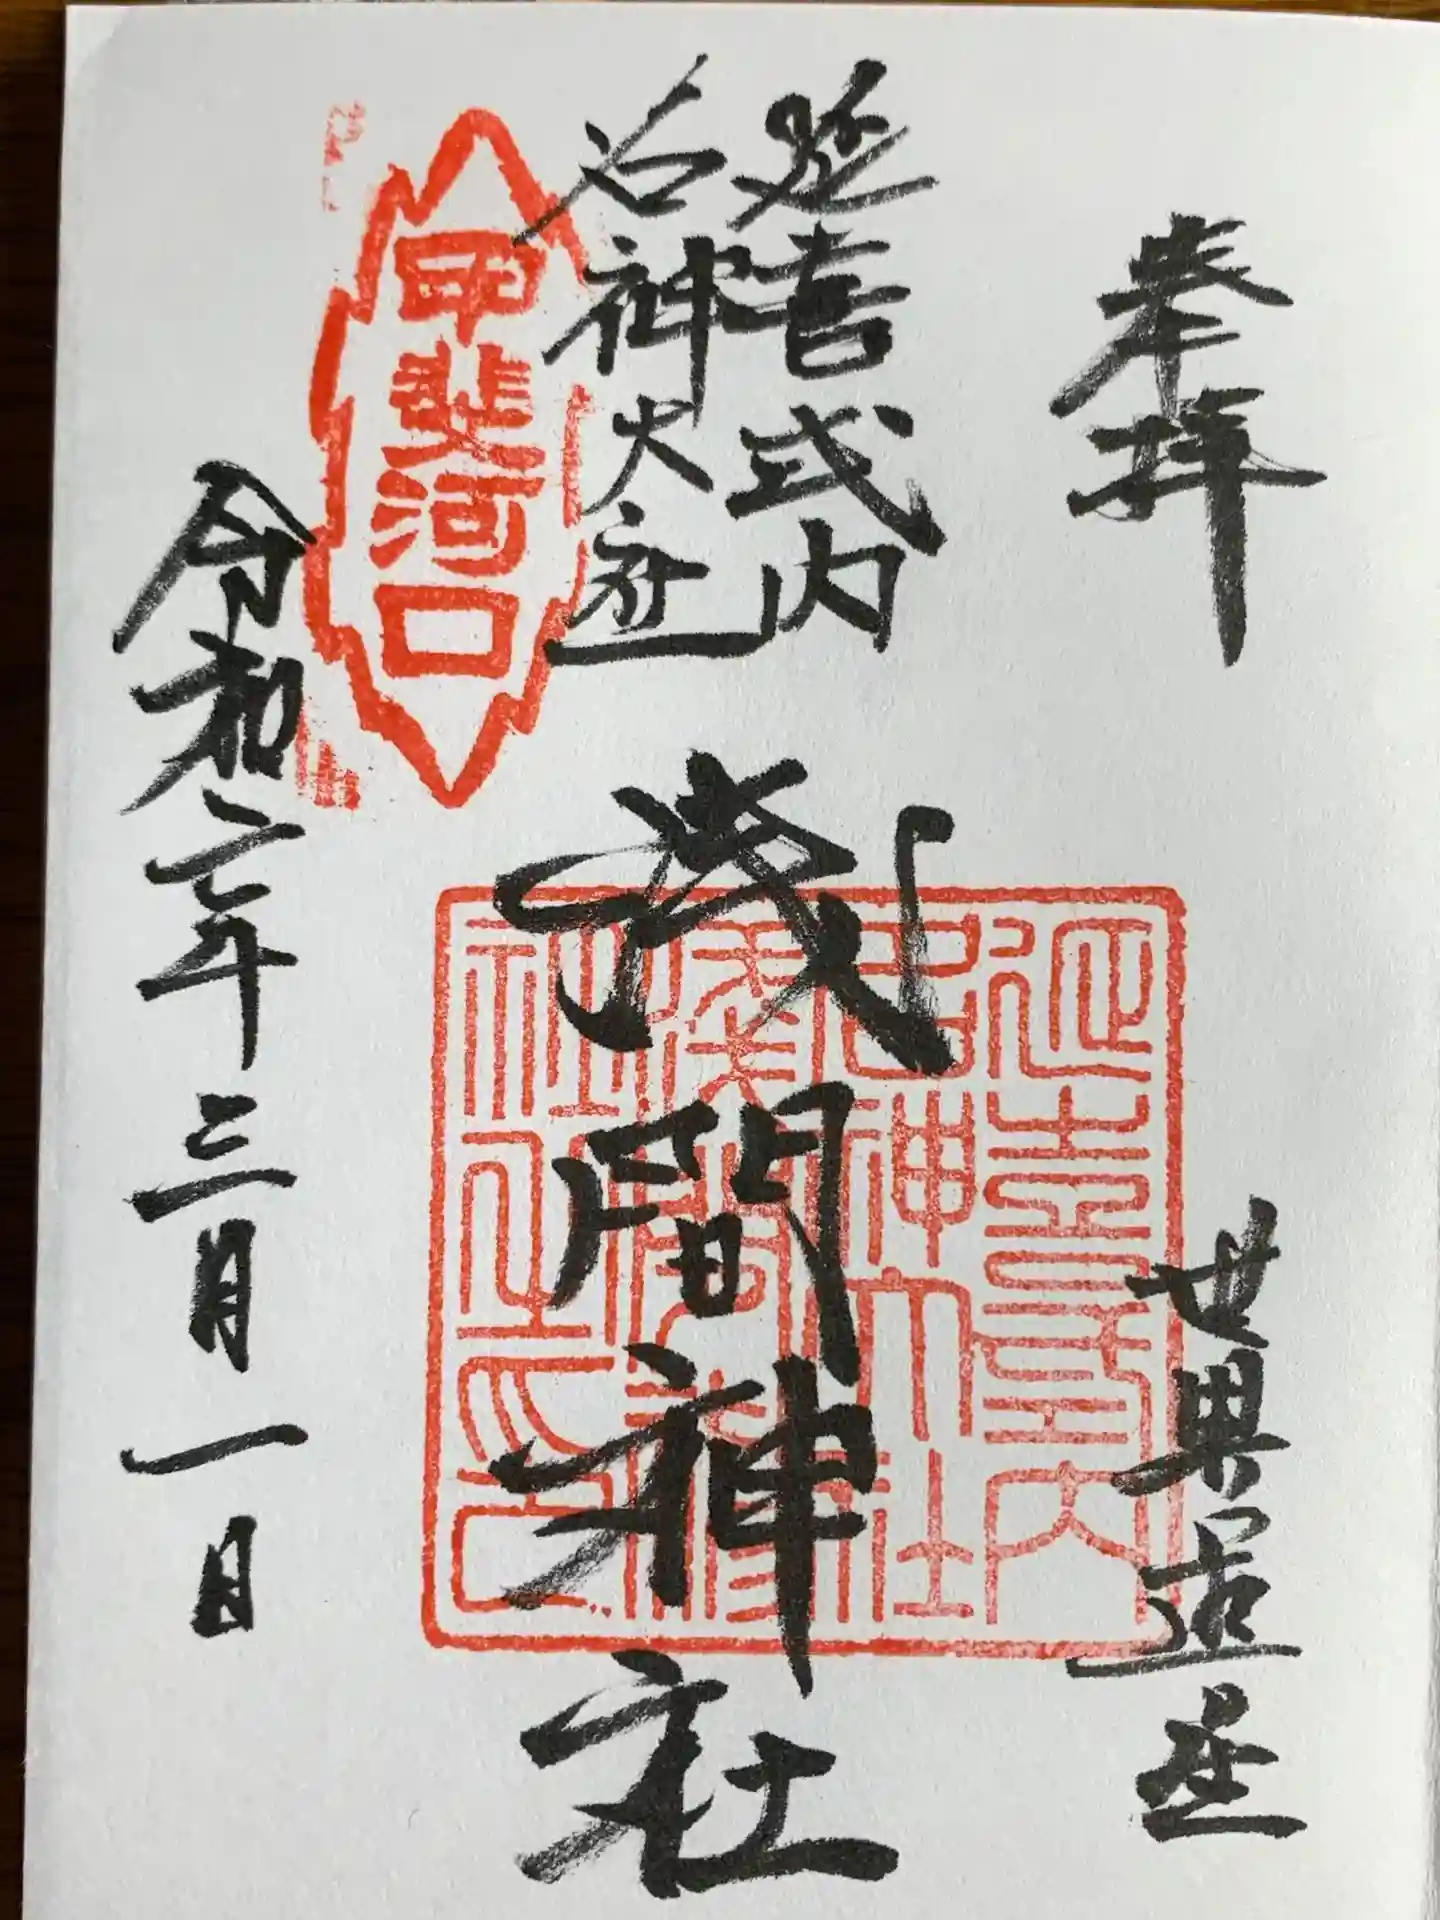 奉拝
世界遺産
延喜式内
名神大社
浅間神社
延喜式内
名神大社
浅間神社之印
甲斐河口
令和二年三月一日